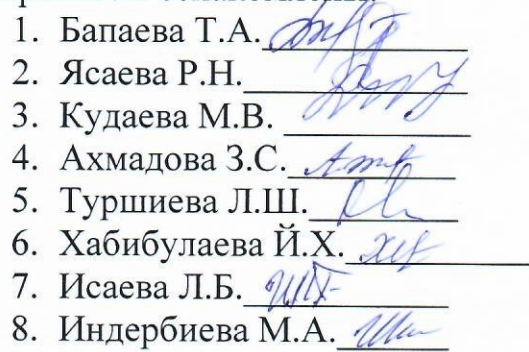 1. Бапаева Т.А.
2. Ясаева Р.Н.
3. Кудаева М.В.
4. Ахмадова З.С.
5. Туршиева Л.Ш.
6. Хабибулаева Й.Х.
7. Исаева Л.Б.
8. Индербиева М.А.